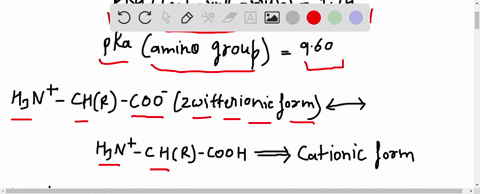 pka (amino group) = 9.60
H3N+ - CH(R) - COO- (zwitterionic form) ⟷
H3N+ - CH(R) - COOH ⟹ Cationic form